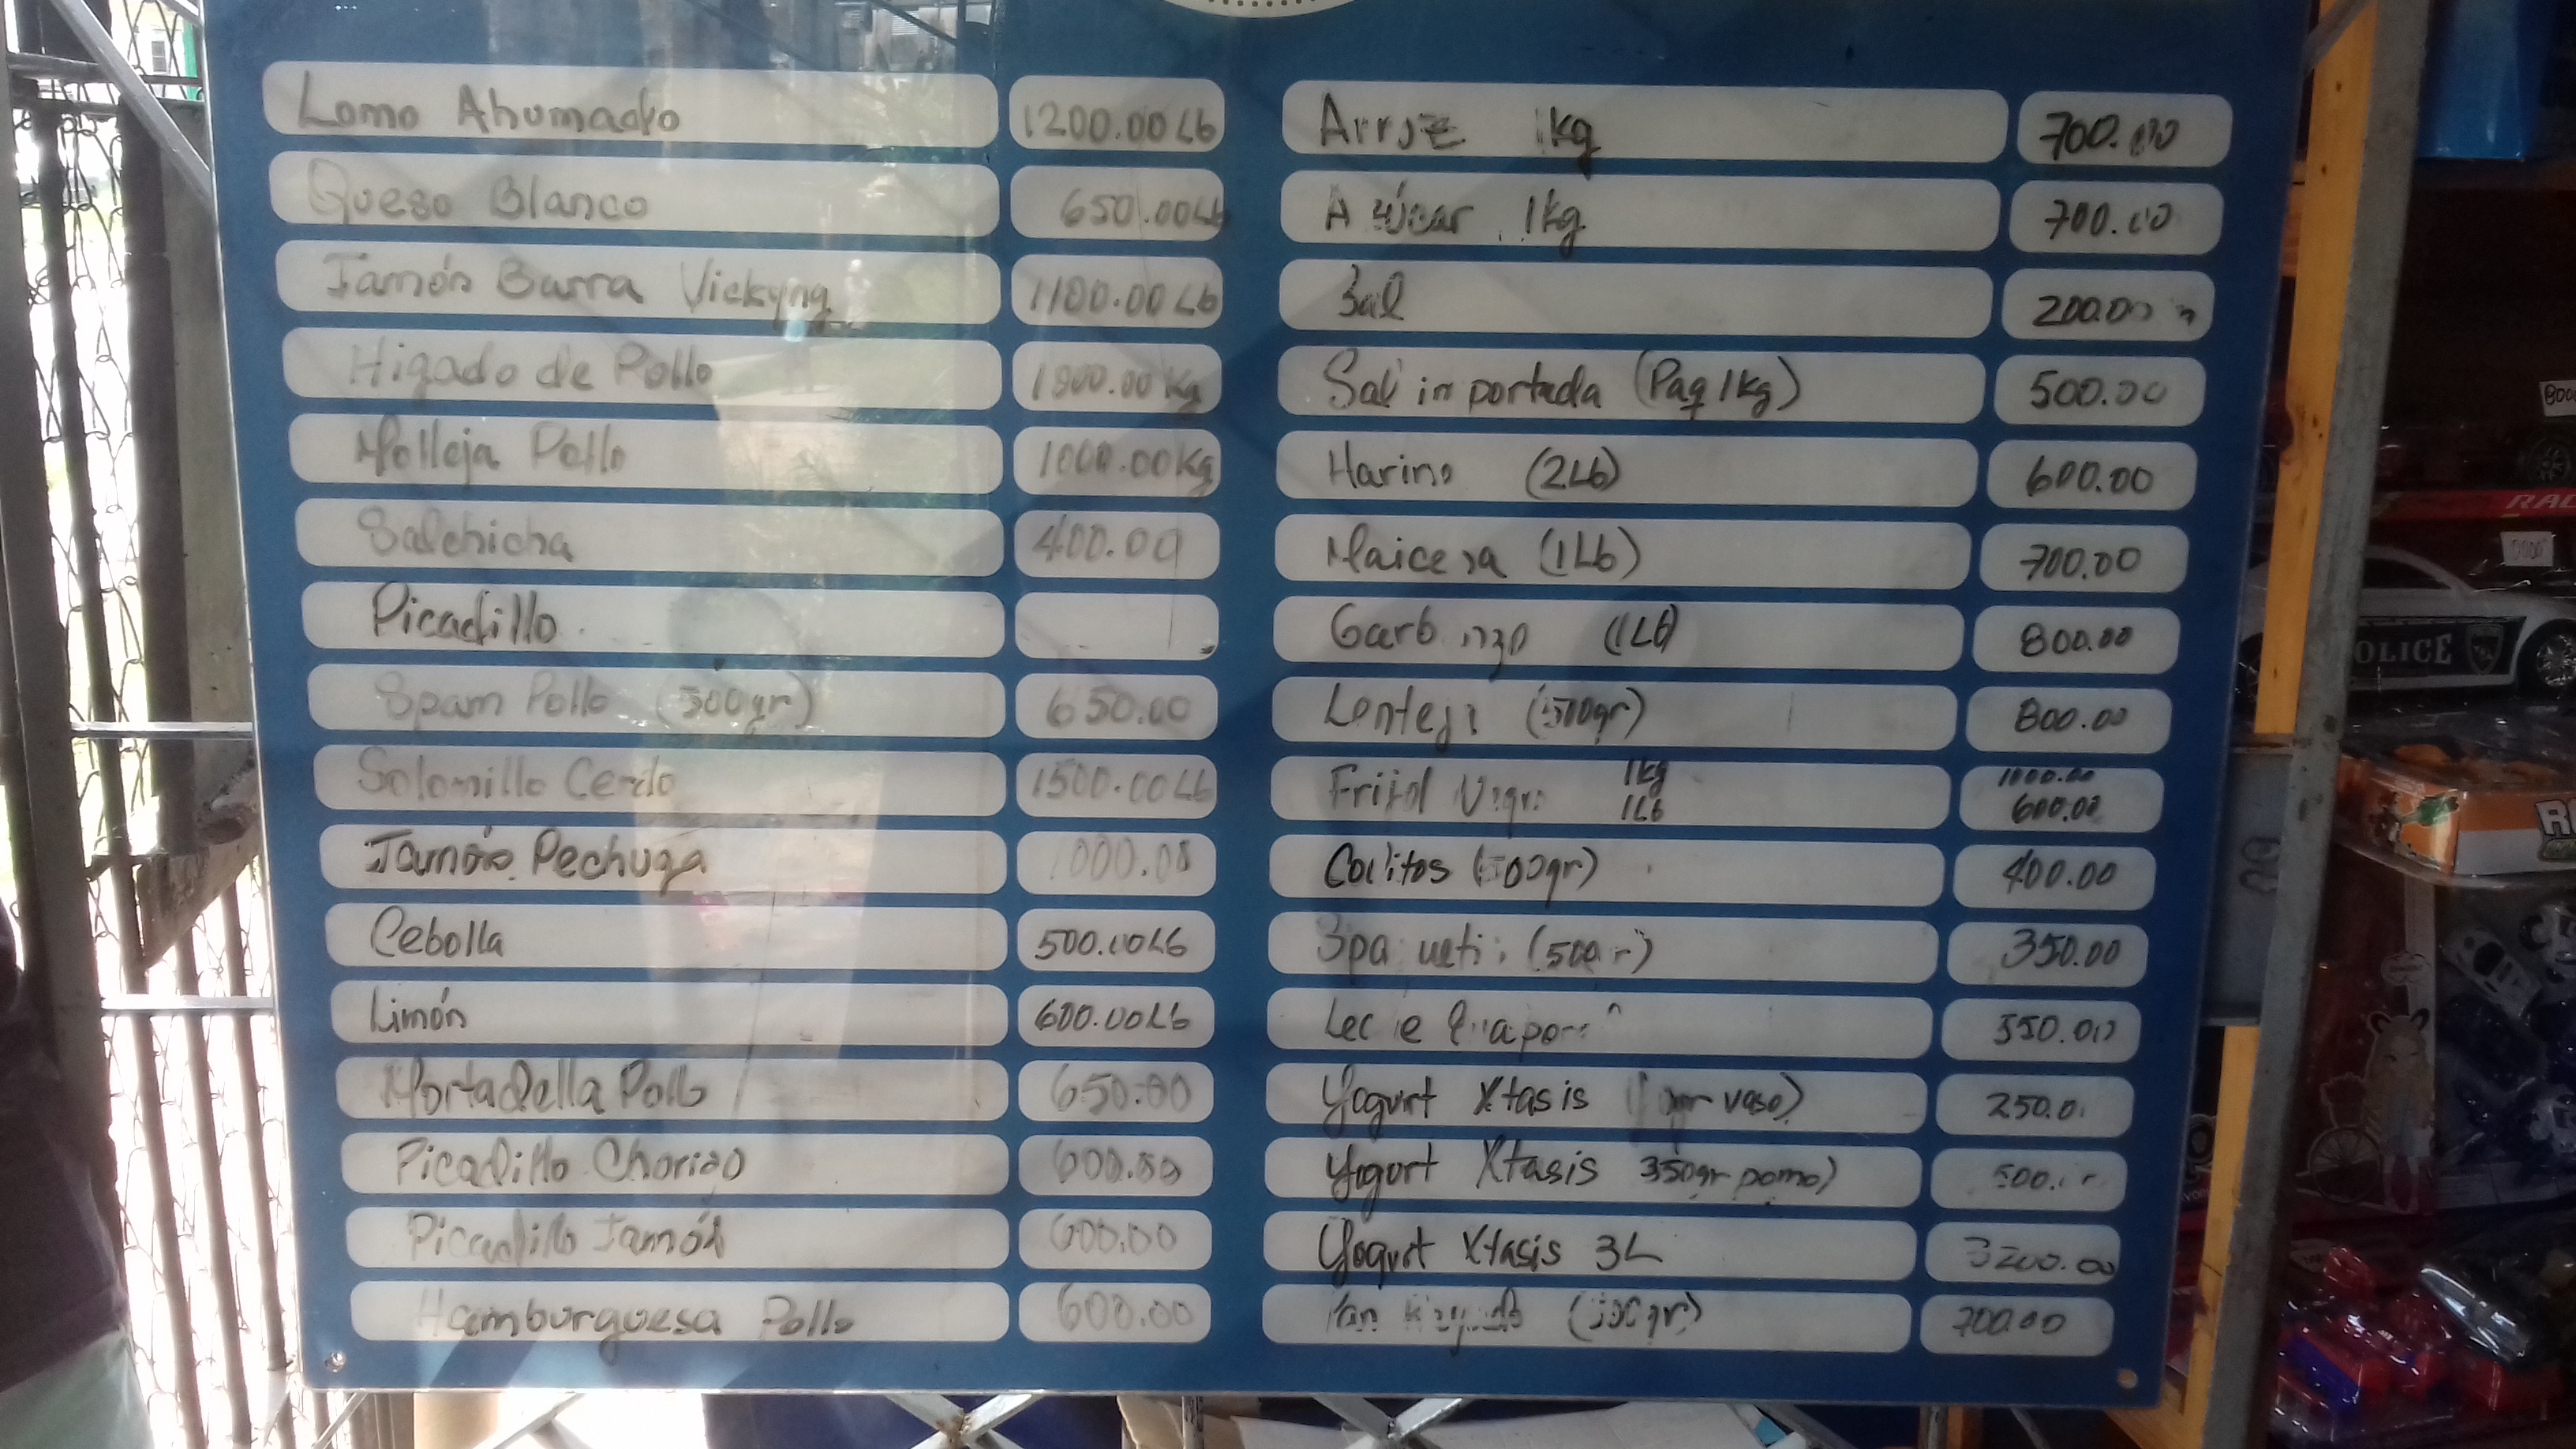 Lomo Ahumado 1200.00 Lb
Queso Blanco 650.00 Lb
Jamón Barra Vickyng 1100.00 Lb
Higado de Pollo Kg
Molleja Pollo 1000.00 Kg
Salchicha 400.00
Picadillo
Spam Pollo (500gr) 650.00
Solomillo Cerdo 1500.00 Lb
Jamón Pechuga
Cebolla 500.00 Lb
Limón 600.00 Lb
Mortadella Pollo 650.00
Picadillo Chorizo 600.00
Picadillo Jamón 600.00
Hamburguesa Pollo 600.00
Arroz 1kg 700.00
Azúcar 1kg 700.00
Sal 200.00
Sal importada (Paq 1kg) 500.00
Harina (2Lb) 600.00
Maicena (1Lb) 700.00
Garbanzo (1Lb) 800.00
Lenteja (500gr) 800.00
Frijol Negro 1kg 1000.00
1Lb 600.00
Coditos (500gr) 400.00
Spaguetti (500gr) 350.00
Leche Evapora 550.00
Yogurt Xtasis vaso) 250.0
Yogurt Xtasis 350gr pomo) 500.
Yogurt Xtasis 3L 3200.00
Pan (500gr) 700.00
POLICE